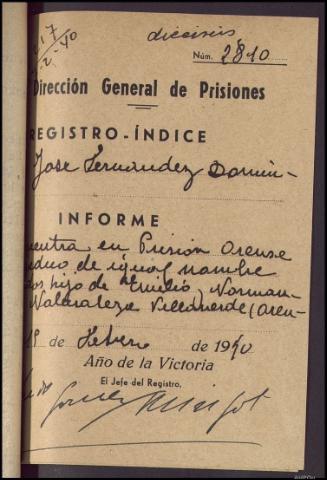 dieciseis
Núm. 2810
Dirección General de Prisiones
REGISTRO-ÍNDICE
Jose Fernandez Domin-
INFORME
cuentra en Prision Orense
de igual nombre
hijo de Emilio,
Villaverde (Oren-
19 de Febrero de 1940
Año de la Victoria
El Jefe del Registro,